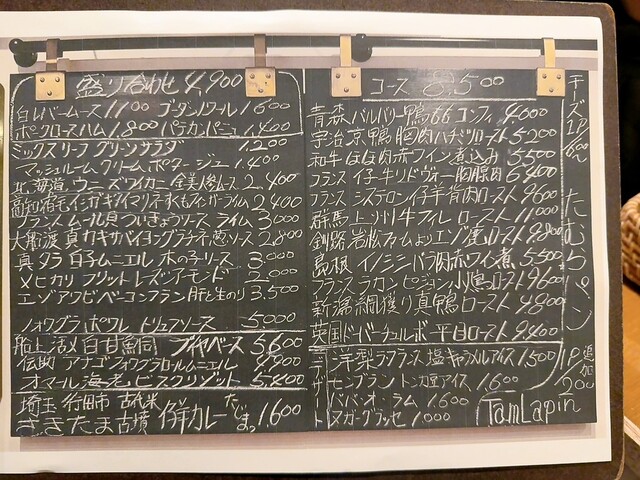 盛り合わせ 4,900
白レバームース 1100 ゴダンノワール 1600
ポークロースハム 1,800 パテカンパーニュ 1,400
ミックスリーフ グリーンサラダ 1,200
マッシュルーム クリームポタージュ 1,400
北海道 ウニ ズワイカニ ムース 2,400
高知 2,400
フランス ムール貝 ソース ライム 3,000
大船渡 真カキ サバイヨングラチネ ソース 2,800
真タラ 白子ムニエル 木の子リース 3,000
メヒカリ フリット レーズアーモンド 2,000
エゾアワビ ベーコンフラン 肝と生のり 3,500
フォワグラ ポワレ トリュフソース 5000
船上活〆 白甘鯛 ブイヤベース 5600
伝助 アナゴ フォワグラロール ムニエル
オマール海老 ビスク リゾット 5,800
埼玉 行田市 古代米
さきたま古墳 仔羊カレー 1,600
コース 8,500
青森 バルバリー鴨 もも コンフィ 4000
宇治 京鴨 胸肉 ハチミツロースト 5200
和牛 ほほ肉 赤ワイン煮込み 5,500
フランス 仔牛 リドヴォー 胸腺肉 6400
フランス シストロン 仔羊 背肉ロースト 9600
群馬 上州牛 フィレ ロースト 11,000
釧路 岩松ファームより エゾ鹿ロースト 9,800
島根 イノシシ バラ肉 赤ワイン煮 5,500
フランス ラカン ピジョン 小鳩 ロースト 9600
新潟 網獲り 真鴨 ロースト 4,800
英国 ドーバーチュルボ 平目ロースト 9400
デザート
洋梨 ラフランス 塩キャラメルアイス 1,500
モンブラン アイス 1,600
ババ・オ・ラム 1,600
ヌガーグラッセ 1,000
TamLapin
チーズ 1P 600〜
たむらパン 1P 追加 200